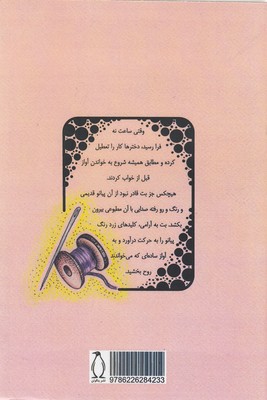 وقتی ساعت نه
فرا رسید، دخترها کار را تعطیل
کرده و مطابق همیشه شروع به خواندن آواز
قبل از خواب کردند.
هیچکس جز بت قادر نبود از آن پیانو قدیمی
و رنگ و رو رفته صدایی با آن مطبوعی بیرون
بکشد. بت به آرامی، کلیدهای زرد رنگ
پیانو را به حرکت درآورد و به
آواز ساده‌ای که می‌خواندند
روح بخشید.
9786226284233